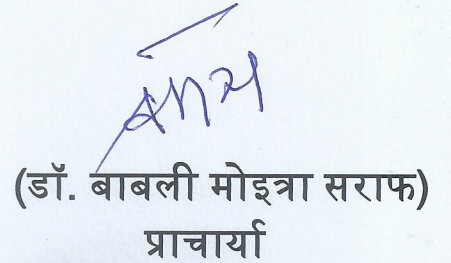 (डॉ. बाबली मोइत्रा सराफ)
प्राचार्या